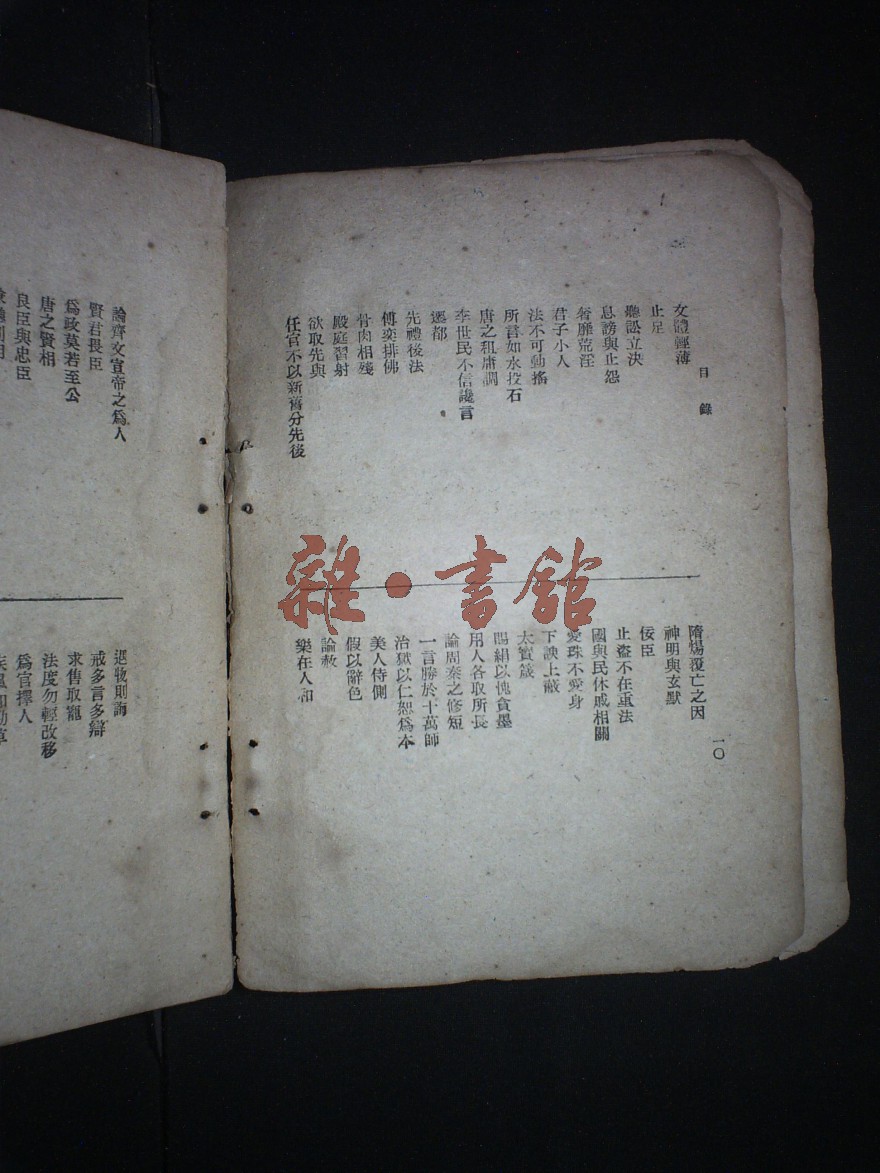 目錄
一〇
文體輕薄
止足
聽訟立決
息謗與止怨
奢靡荒淫
君子小人
法不可動搖
所言如水投石
唐之租庸調
李世民不信讒言
遷都
先禮後法
傅奕排佛
骨肉相殘
殿庭習射
欲取先與
任官不以新舊分先後
隋煬覆亡之因
神明與玄默
佞臣
止盜不在重法
國與民休戚相關
愛珠不愛身
下諛上蔽
大寶箴
賜絹以愧貪墨
用人各取所長
論周秦之修短
一言勝於十萬師
治獄以仁恕為本
美人侍側
假以辭色
論赦
樂在人和
論齊文宣帝之為人
賢君畏臣
為政莫若至公
唐之賢相
良臣與忠臣
遇物則誨
戒多言多辯
求售取寵
法度勿輕改移
為官擇人
雜·書館